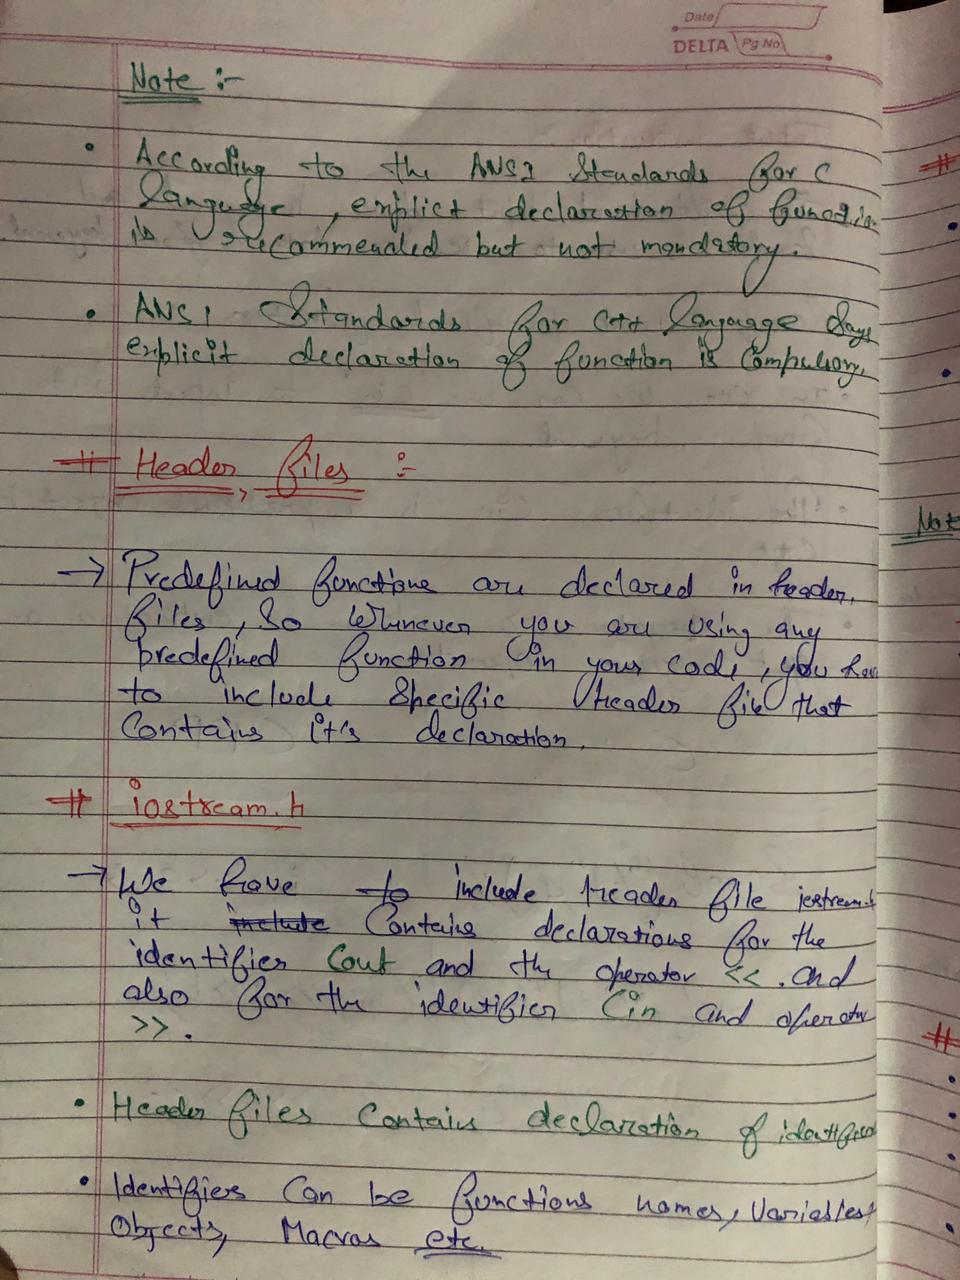 Date
DELTA Pg No
Note :-
• According to the ANSI Standards for C
language, explict declaration of function
is recommended but not mandatory.
• ANSI Standards for C++ language says
explicit declaration of function is Compulsory.
# Header files :-
→ Predefined functions are declared in header
files, So Whenever you are using any
predefined function in your code, you have
to include Specific Header file that
Contains it's declaration.
# iostream.h
→ We have to include Header file iostream.h
it include Contains declarations for the
identifier Cout and the operator <<. and
also for the identifier Cin and operator
>>.
• Header files Contains declaration of identifiers
• Identifiers Can be functions names, Variables,
Objects, Macros etc.
#
Note
#